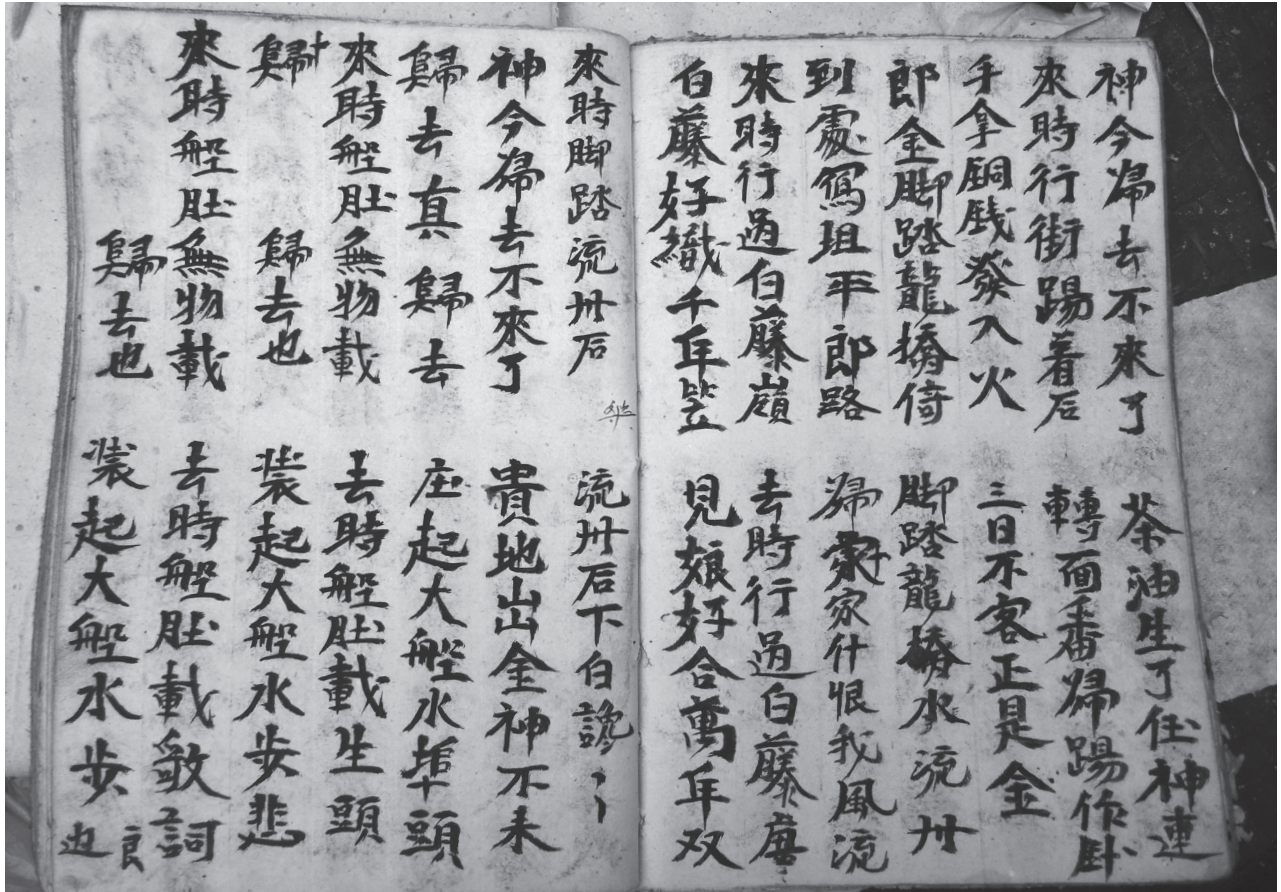 神今歸去不來了　茶油生了任神連
來時行街踢着石　轉面番歸踢作
手拿銅錢發入火　三日不客正是金
郎金脚踏龍橋倚　脚踏龍橋水流卅
到處寫坦平郎路　歸家什恨我風流
來時行過白藤嶺　去時行過白藤
白藤好織千年笠　見娘好合萬年双
來時脚踏流卅石　流卅石下白
神今歸去不來了　貴地出金神不未
歸去真歸去　庄起大船水埠頭
來時船肚無物載　去時船肚載生頭
歸　歸去也　装起大船水步悲
來時船肚無物載　去時船肚載歌詞
歸去也　装起大船水步